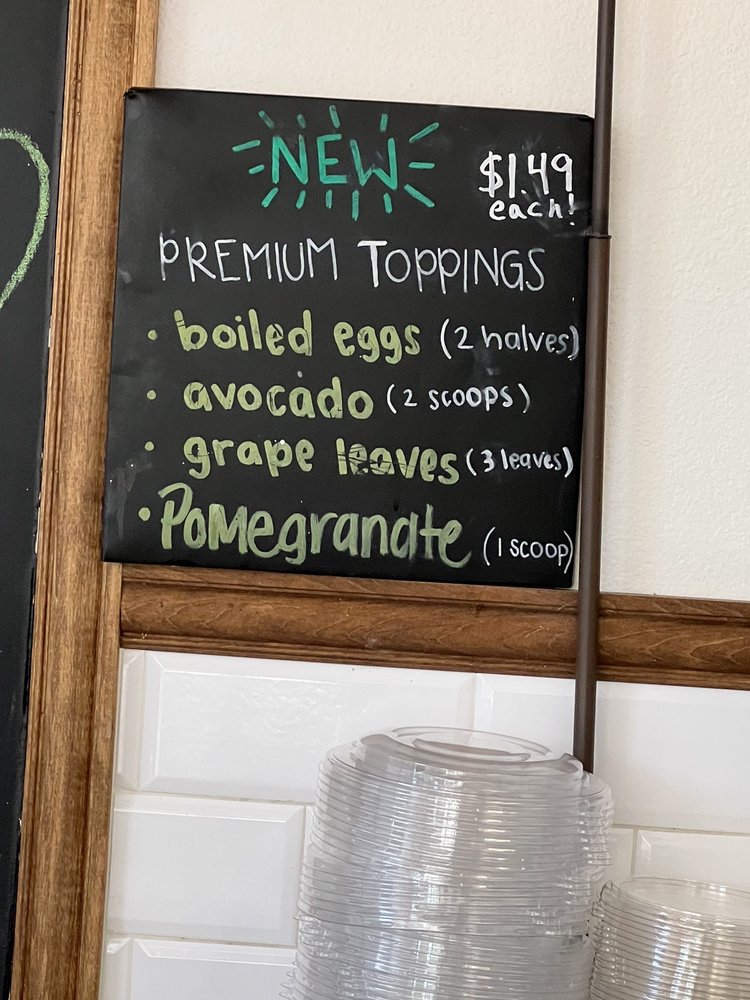 NEW
$1.49
each!
PREMIUM TOPPINGS
• boiled eggs (2 halves)
• avocado (2 scoops)
• grape leaves (3 leaves)
• Pomegranate (1 scoop)